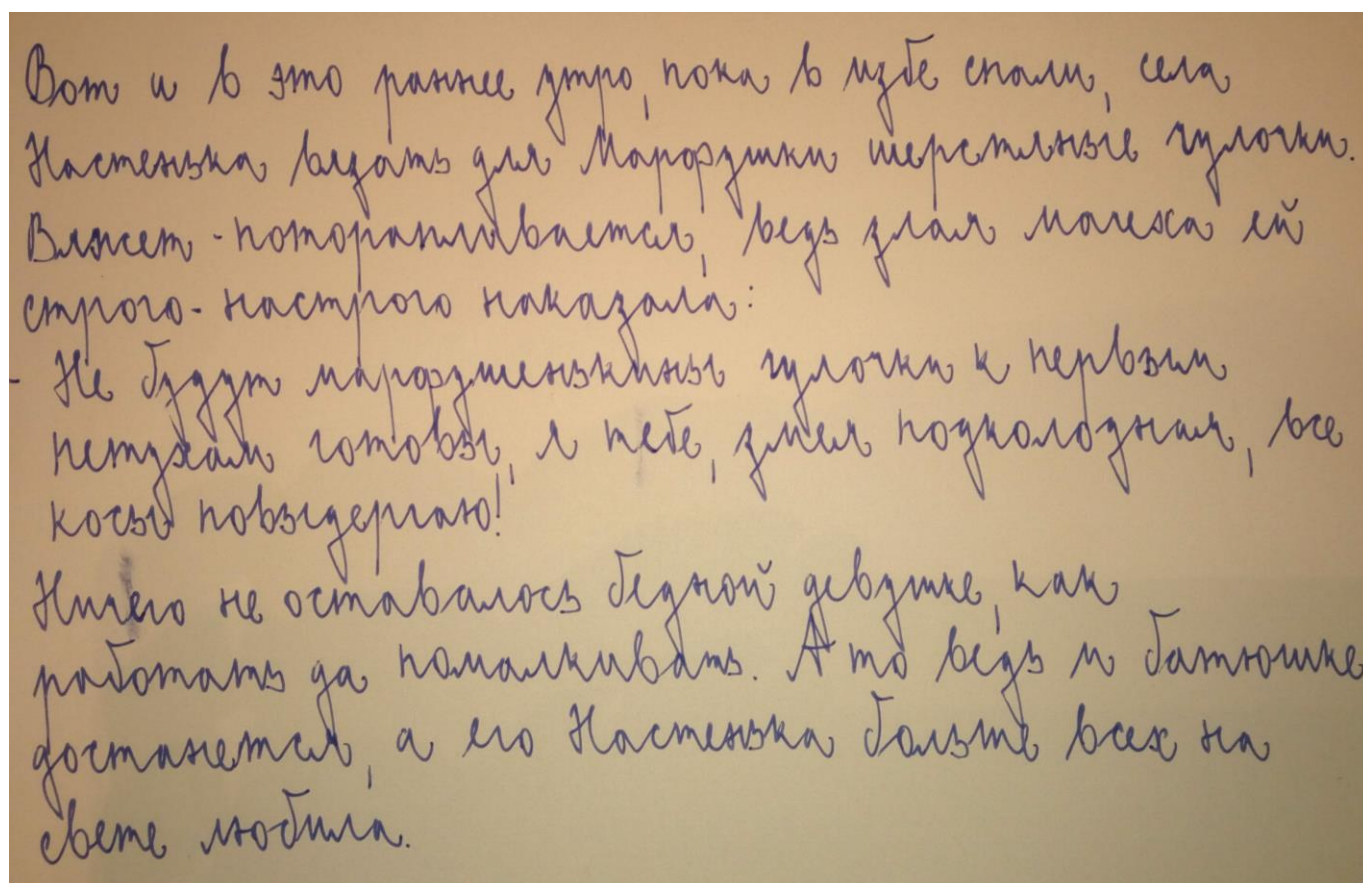 Вот и в это раннее утро, пока в избе спали, села
Настенька вязать для Марфушки шерстяные чулочки.
Вяжет - поторапливается, ведь злая мачеха ей
строго- настрого наказала:
- Не будут марфушенькины чулочки к первым
петухам готовы, я тебе, змея подколодная, все
косы повыдергаю!
Ничего не оставалось бедной девушке, как
работать да помалкивать. А то ведь и батюшке
достанется, а его Настенька больше всех на
свете любила.